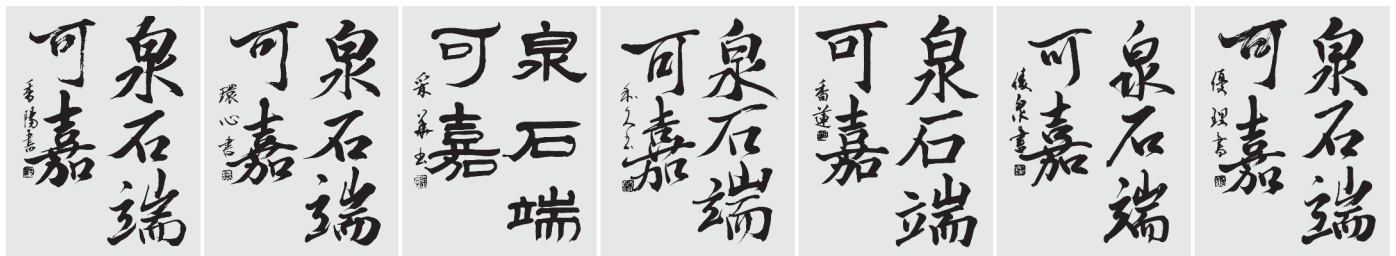 泉石端
可嘉
香陽書
泉石端
可嘉
環心書
泉石端
可嘉
采華書
泉石端
可嘉
泉石端
可嘉
香蓮
泉石端
可嘉
泉書
泉石端
可嘉
優理書